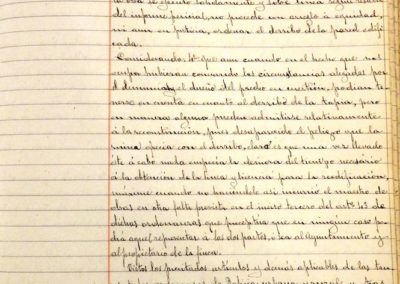 del informe pericial, no procede con arreglo á equidad,
ni aun en justicia, ordenar el derribo de la pared edifi
cada.
Considerando 4º: Que aun cuando en el hecho que nos
ocupa hubieran concurrido las circunstancias alegadas por
el denunciado, el dueño del predio en cuestión, podian te
nerse en cuenta en cuanto al derribo de la tapia, pero
en manera alguna pueden admitirse relativamente
á la reconstrucción, pues desaparecido el peligro que la
ruina ofrecia con el derribo, claro es que una vez llevado
éste á cabo nada empecia la demora del tiempo necesario
á la obtención de la linea y licencia para la reedificación,
máxime cuando no haciendolo asi incurrió el maestro de
obras en otra falta prevista en el inciso tercero del artº 43 de
dichas ordenanzas que preceptua que en ningun caso po
drá aquel representar á las dos partes, ó sea al Ayuntamiento y
al propietario de la finca.
Vistos los precitados artículos y demás aplicables de las